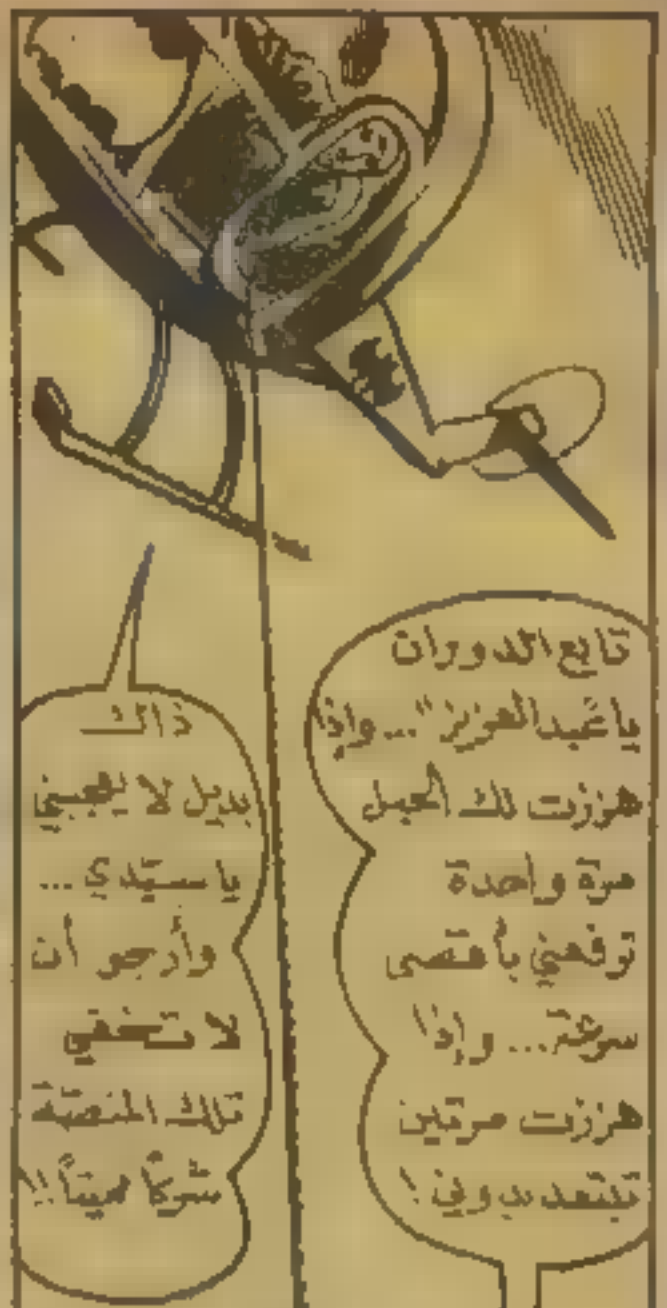 تابع الدوران
يا عبدالعزيز"... وإذا
هززت لك الحبل
مرة واحدة
ترفعني بأقصى
سرعة... وإذا
هززت مرتين
تبتعد بدوني!
ذاك
بديل لا يعجبني
يا سيّدي...
وأرجو أن
لا تخفي
تلك المنصّة
شركاً مميتاً!!